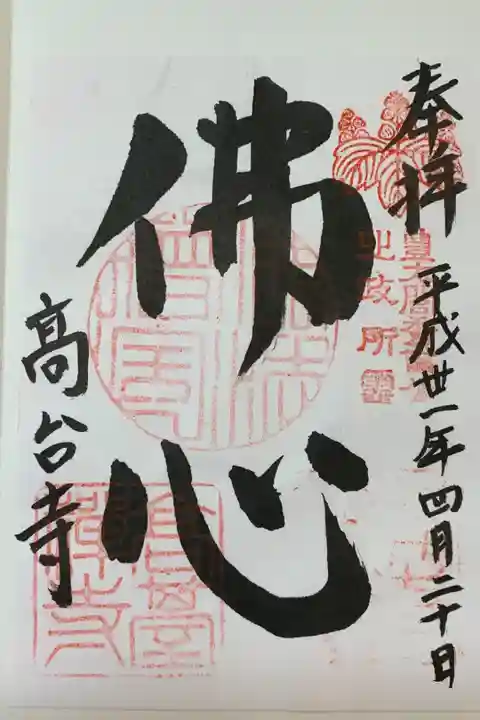 奉拝 平成丗一年四月二十日
佛心
高台寺